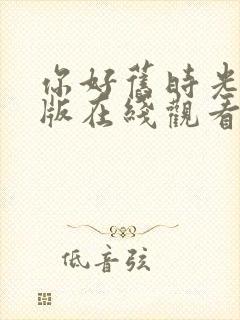 你好舊時光
版在綫觀看
低音弦